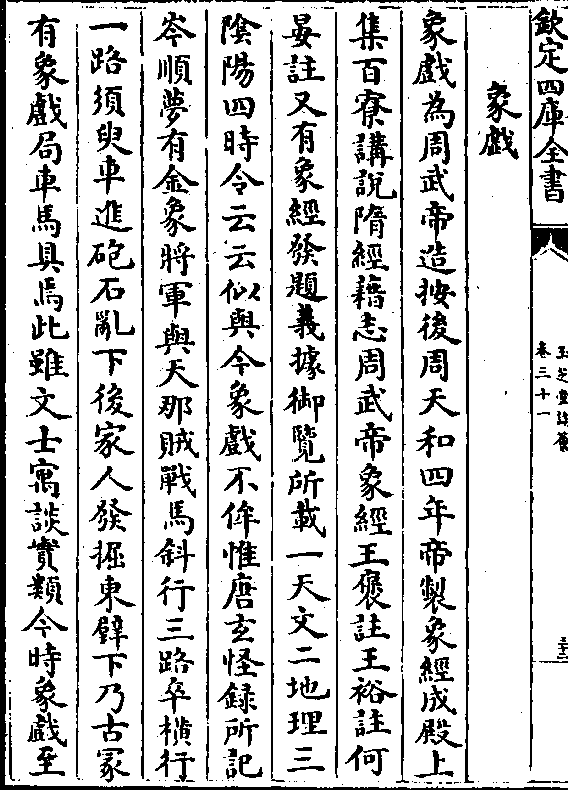 欽定四庫全書
玉芝堂談薈
卷三十一
象戲
象戲為周武帝造按後周天和四年帝製象經成殿上
集百寮講說隋經籍志周武帝象經王褒註王裕註何
妥註又有象經發題義據御覽所載一天文二地理三
陰陽四時令云云似與今象戲不侔惟唐玄怪録所記
岑順夢有金象將軍與天那賊戰馬斜行三路卒横行
一路須臾車進砲石亂下後家人發掘東壁下乃古冢
有象戲局車馬具焉此雖文士寓談實類今時象戲至